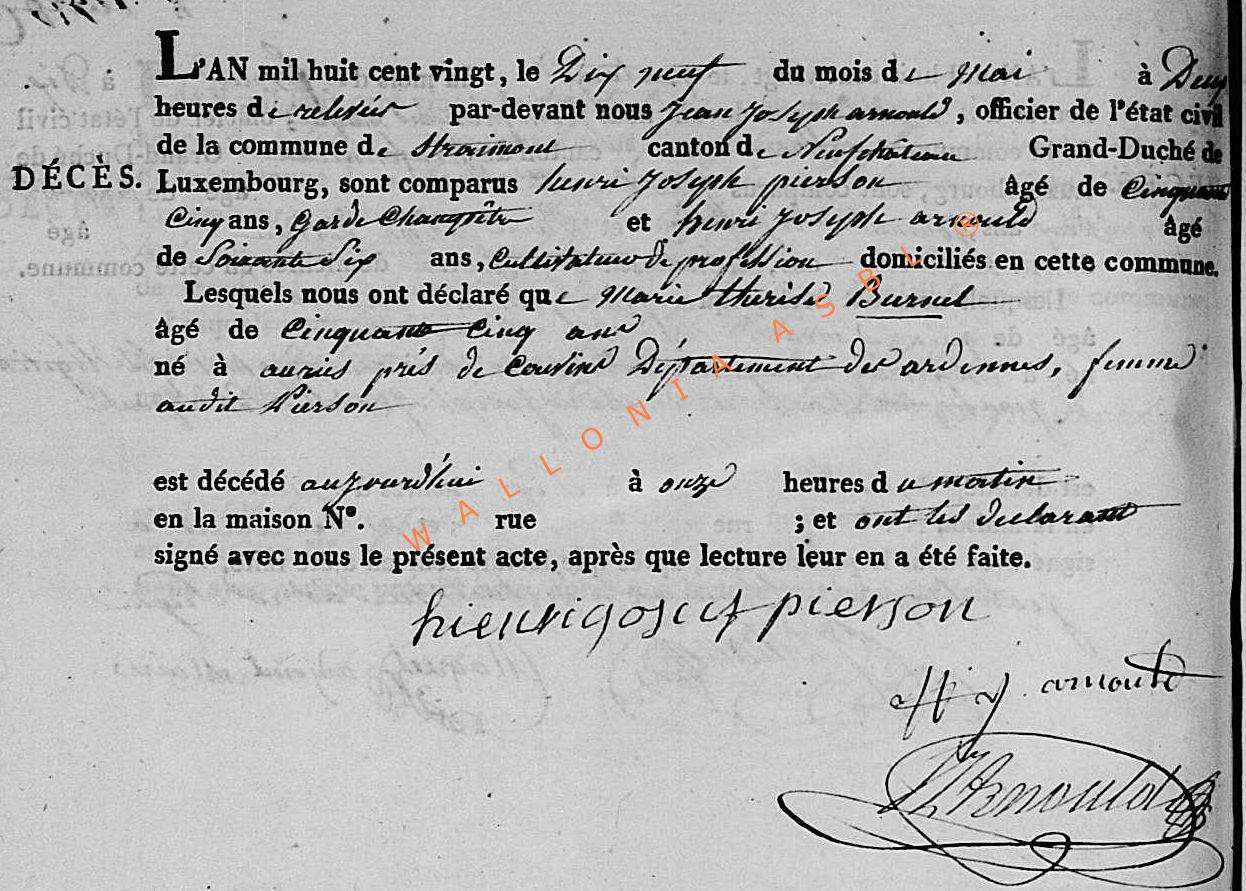 L'AN mil huit cent vingt, le Dix neuf du mois de Mai à Deux
heures de relevés par-devant nous Jean Joseph arnould, officier de l'état civil
de la commune de Straimont canton de Neufchateau Grand-Duché de
DÉCÈS. Luxembourg, sont comparus henri Joseph pierson âgé de Cinquante
Cinq ans, Garde Champêtre et henri Joseph arnould âgé
de Soixante Six ans, Cultivateur de profession domiciliés en cette commune.
Lesquels nous ont déclaré que Marie therese Burnel
âgé de Cinquante Cinq ans
né à près de Couvins Département des ardennes, femme
audit Pierson
est décédé aujourd'hui à onze heures du matin
en la maison N°. rue ; et ont les declarant
signé avec nous le présent acte, après que lecture leur en a été faite.
pierson
H J arnould
Arnould
WALLONIA ASBL ®